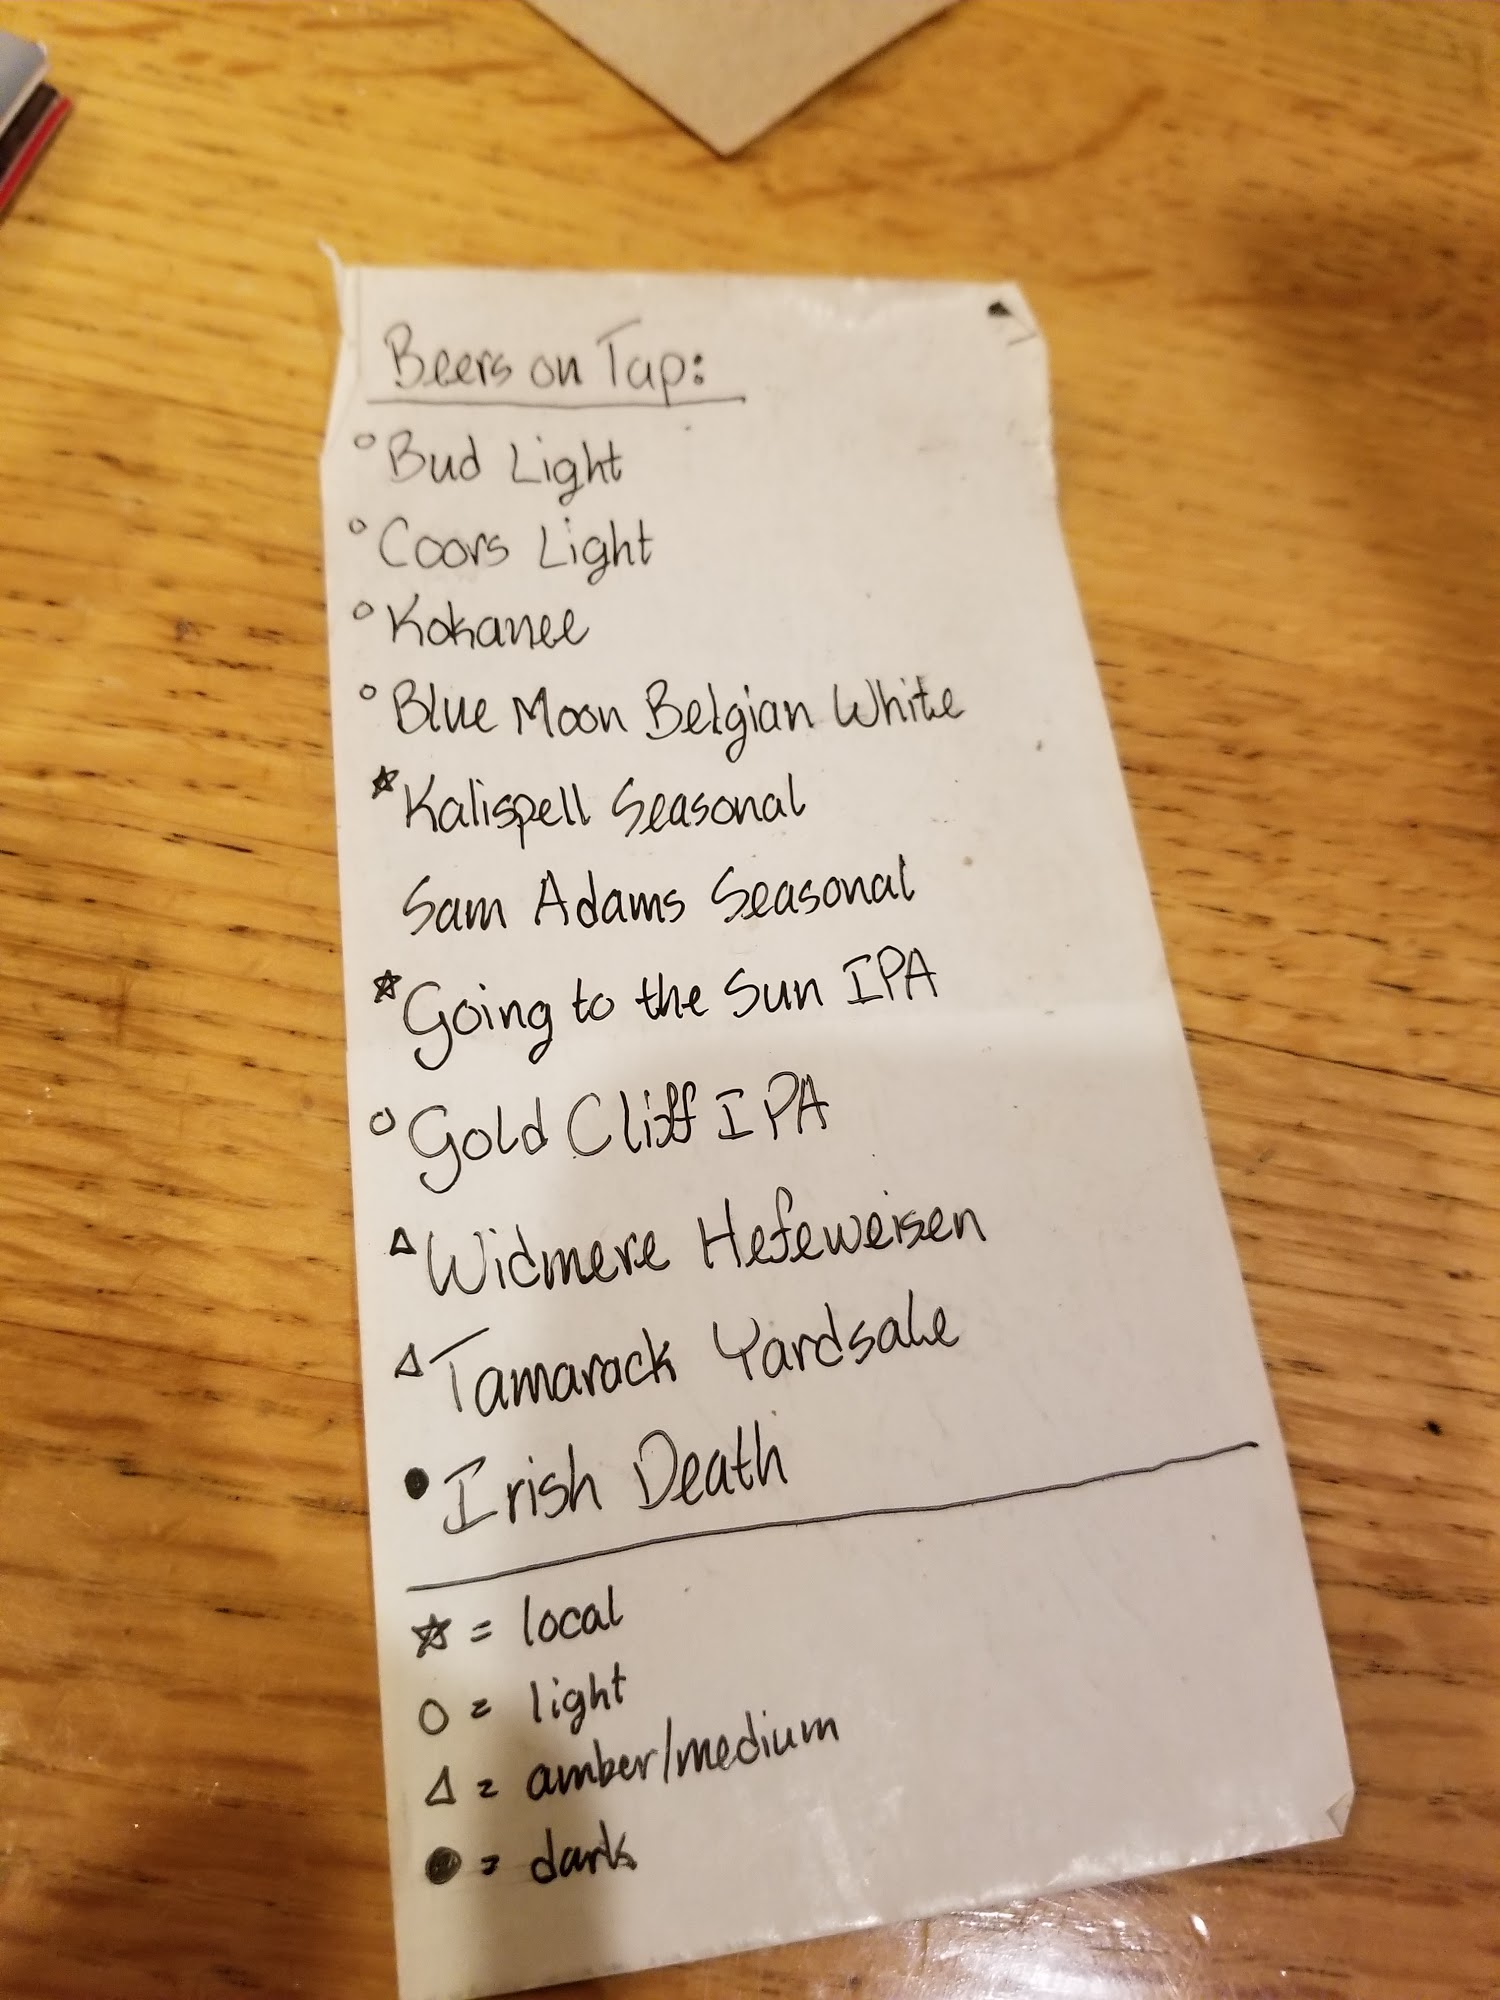 Beers on Tap:
○ Bud Light
○ Coors Light
○ Kokanee
○ Blue Moon Belgian White
☆ Kalispell Seasonal
Sam Adams Seasonal
☆ Going to the Sun IPA
○ Gold Cliff IPA
△ Widmere Hefeweisen
△ Tamarack Yardsale
● Irish Death
☆ = local
○ = light
△ = amber/medium
● = dark